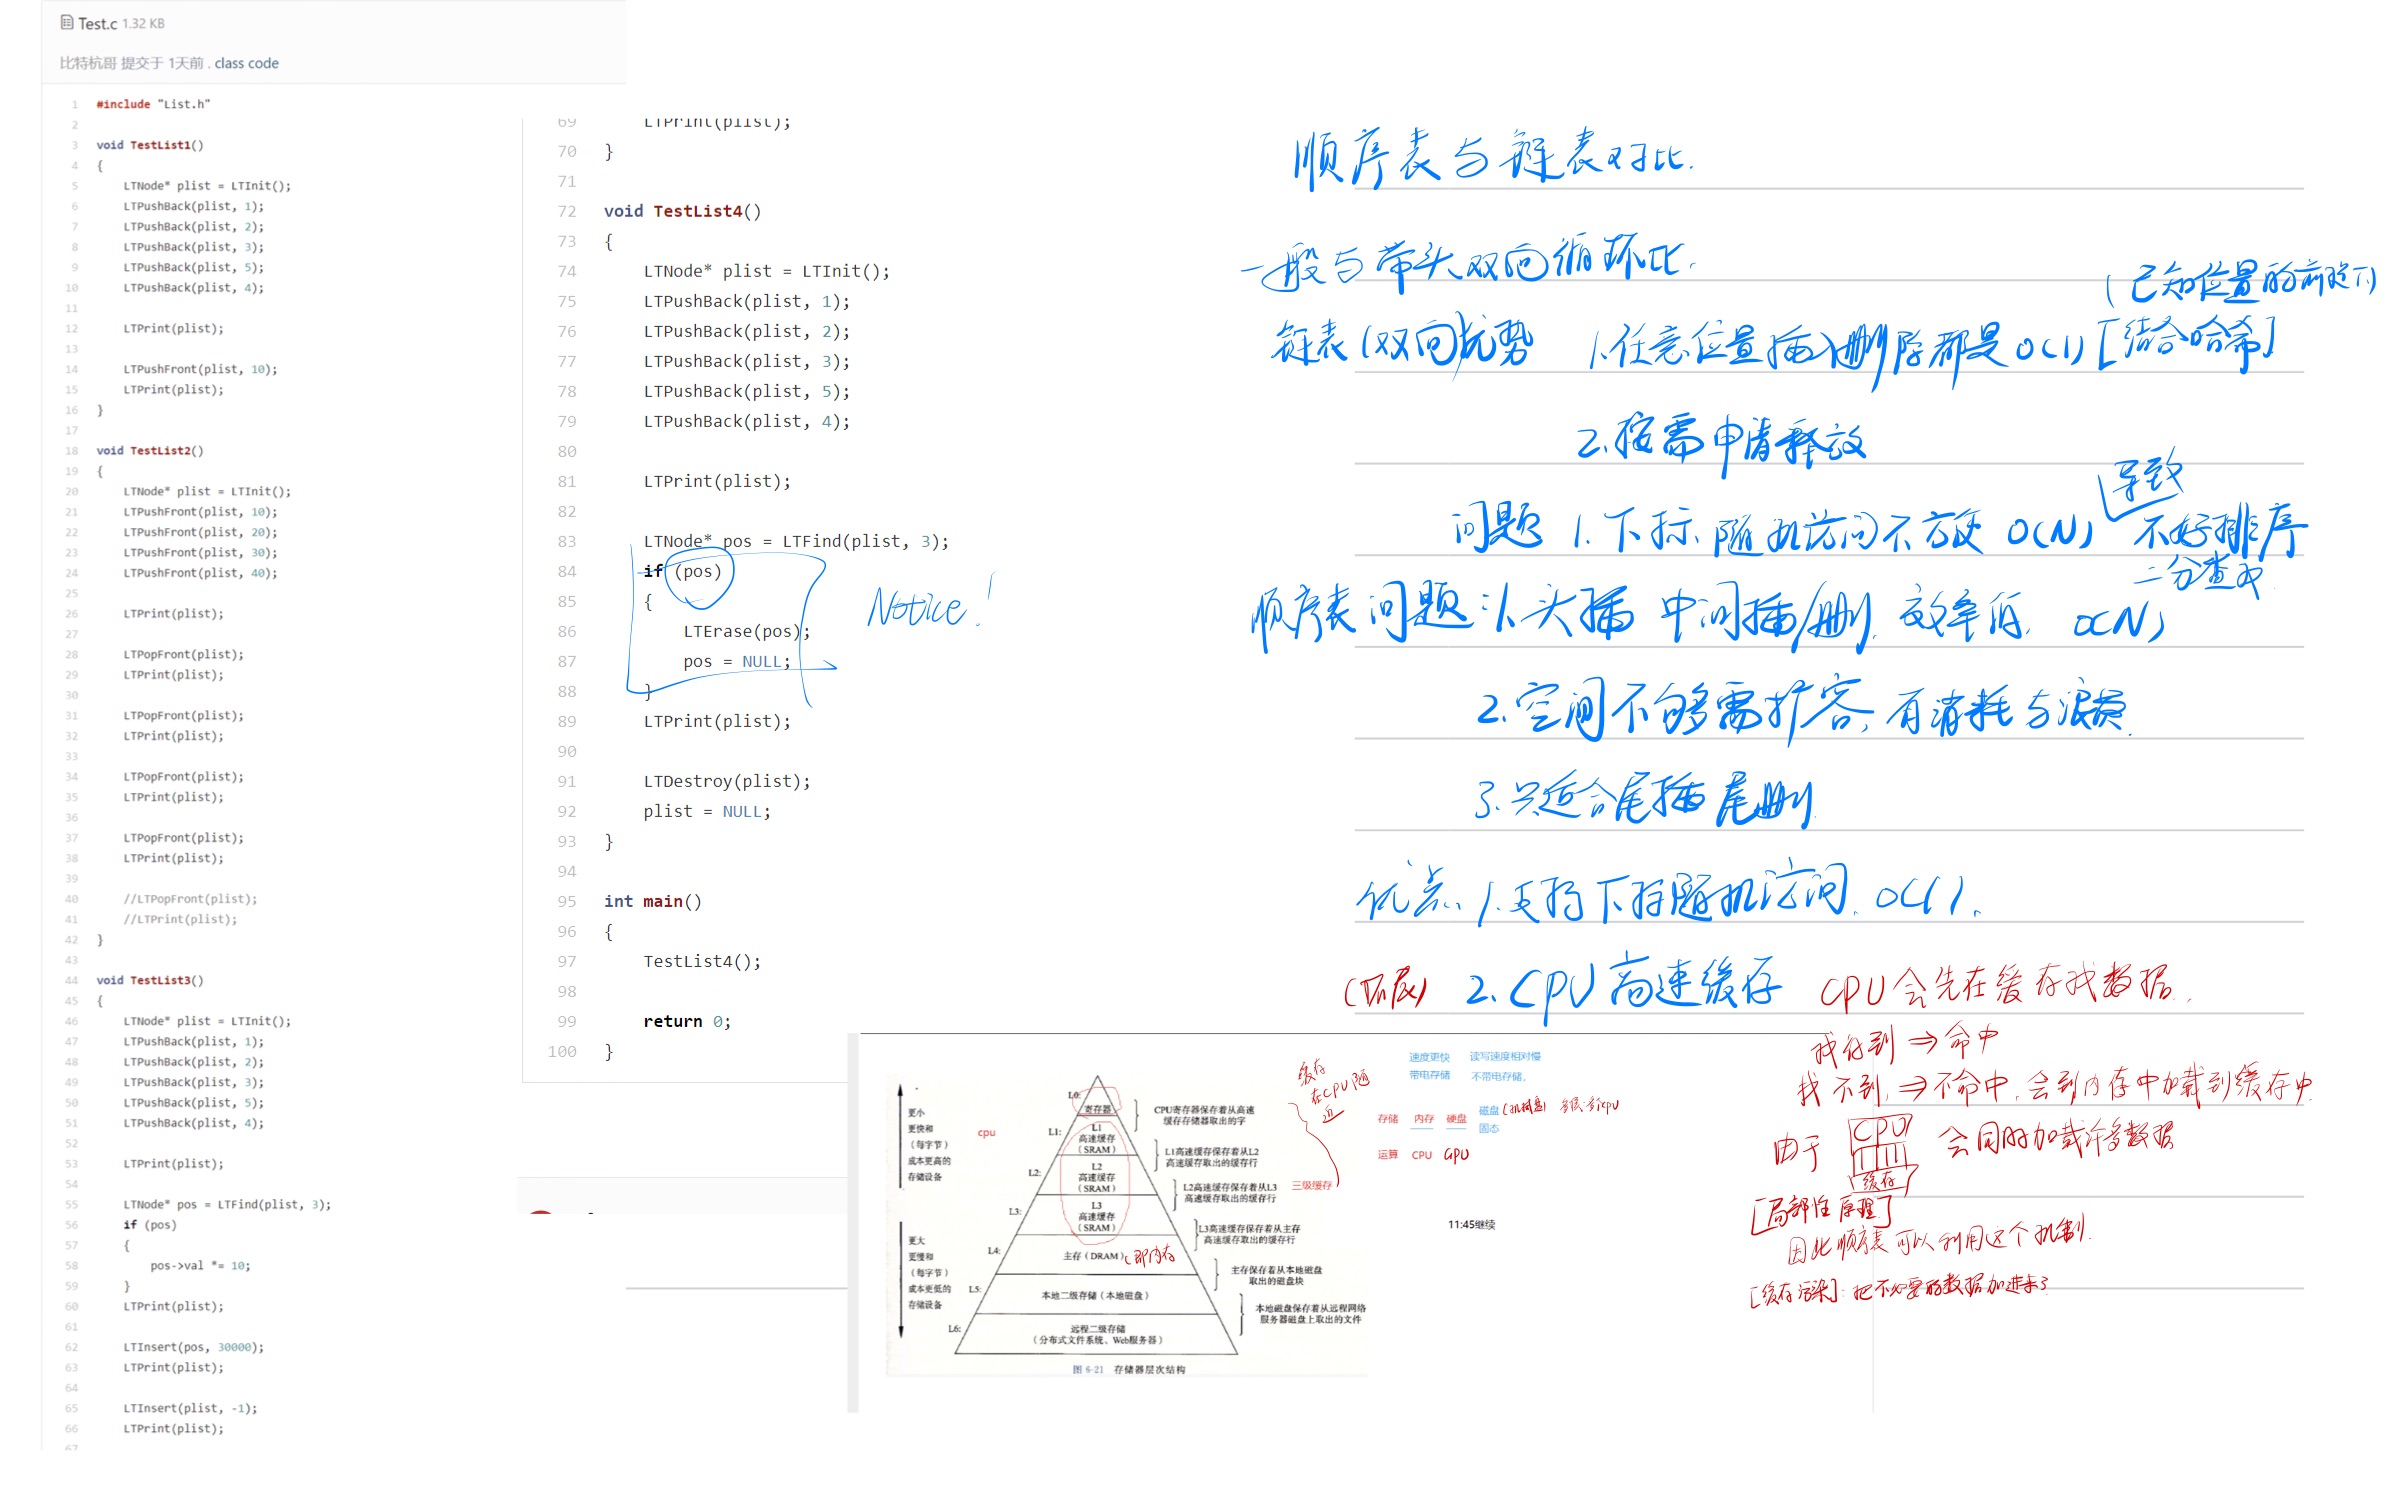 Test.c 1.32 KB
比特杭哥 提交于 1天前 . class code
1 #include "List.h"
2
3 void TestList1()
4 {
5 LTNode* plist = LTInit();
6 LTPushBack(plist, 1);
7 LTPushBack(plist, 2);
8 LTPushBack(plist, 3);
9 LTPushBack(plist, 5);
10 LTPushBack(plist, 4);
11
12 LTPrint(plist);
13
14 LTPushFront(plist, 10);
15 LTPrint(plist);
16 }
17
18 void TestList2()
19 {
20 LTNode* plist = LTInit();
21 LTPushFront(plist, 10);
22 LTPushFront(plist, 20);
23 LTPushFront(plist, 30);
24 LTPushFront(plist, 40);
25
26 LTPrint(plist);
27
28 LTPopFront(plist);
29 LTPrint(plist);
30
31 LTPopFront(plist);
32 LTPrint(plist);
33
34 LTPopFront(plist);
35 LTPrint(plist);
36
37 LTPopFront(plist);
38 LTPrint(plist);
39
40 //LTPopFront(plist);
41 //LTPrint(plist);
42 }
43
44 void TestList3()
45 {
46 LTNode* plist = LTInit();
47 LTPushBack(plist, 1);
48 LTPushBack(plist, 2);
49 LTPushBack(plist, 3);
50 LTPushBack(plist, 5);
51 LTPushBack(plist, 4);
52
53 LTPrint(plist);
54
55 LTNode* pos = LTFind(plist, 3);
56 if (pos)
57 {
58 pos->val *= 10;
59 }
60 LTPrint(plist);
61
62 LTInsert(pos, 30000);
63 LTPrint(plist);
64
65 LTInsert(plist, -1);
66 LTPrint(plist);
67
69 LTPrint(plist);
70 }
71
72 void TestList4()
73 {
74 LTNode* plist = LTInit();
75 LTPushBack(plist, 1);
76 LTPushBack(plist, 2);
77 LTPushBack(plist, 3);
78 LTPushBack(plist, 5);
79 LTPushBack(plist, 4);
80
81 LTPrint(plist);
82
83 LTNode* pos = LTFind(plist, 3);
84 if (pos)
85 {
86 LTErase(pos);
87 pos = NULL;
88 }
89 LTPrint(plist);
90
91 LTDestroy(plist);
92 plist = NULL;
93 }
94
95 int main()
96 {
97 TestList4();
98
99 return 0;
100 }
Notice!
顺序表与链表对比.
一般与带头双向循环比.
(已知位置的前提下)
链表(双向)优势 1.任意位置插入删除都是O(1) [结合哈希]
2.按需申请释放
导致
问题 1.下标随机访问不方便 O(N) 不好排序
二分查找
顺序表问题:1.头插 中间插/删 效率低. O(N)
2.空间不够需扩容,有消耗与浪费.
3.只适合尾插尾删
优点 1.支持下标随机访问. O(1).
2.CPU高速缓存 CPU会先在缓存找数据.
找得到⇒命中
找不到⇒不命中,会到内存中加载到缓存中
由于 CPU 缓存 会同时加载许多数据
[局部性原理]
因此顺序表可以利用这个机制.
[缓存污染]:把不必要的数据加进来了
更小
更快和
(每字节)
成本更高的
存储设备
更大
更慢和
(每字节)
成本更低的
存储设备
cpu
L0: 寄存器
L1: L1
高速缓存
(SRAM)
L2: L2
高速缓存
(SRAM)
L3: L3
高速缓存
(SRAM)
L4: 主存(DRAM) (即内存
L5: 本地二级存储(本地磁盘)
L6: 远程二级存储
(分布式文件系统、Web服务器)
CPU寄存器保存着从高速
缓存存储器取出的字
L1高速缓存保存着从L2
高速缓存取出的缓存行
L2高速缓存保存着从L3
高速缓存取出的缓存行
L3高速缓存保存着从主存
高速缓存取出的缓存行
主存保存着从本地磁盘
取出的磁盘块
本地磁盘保存着从远程网络
服务器磁盘上取出的文件
图 6-21 存储器层次结构
缓存
在CPU附
近
三级缓存
速度更快 读写速度相对慢
带电存储 不带电存储,
存储 内存 硬盘 磁盘(机械盘)
固态
运算 CPU GPU
11:45继续